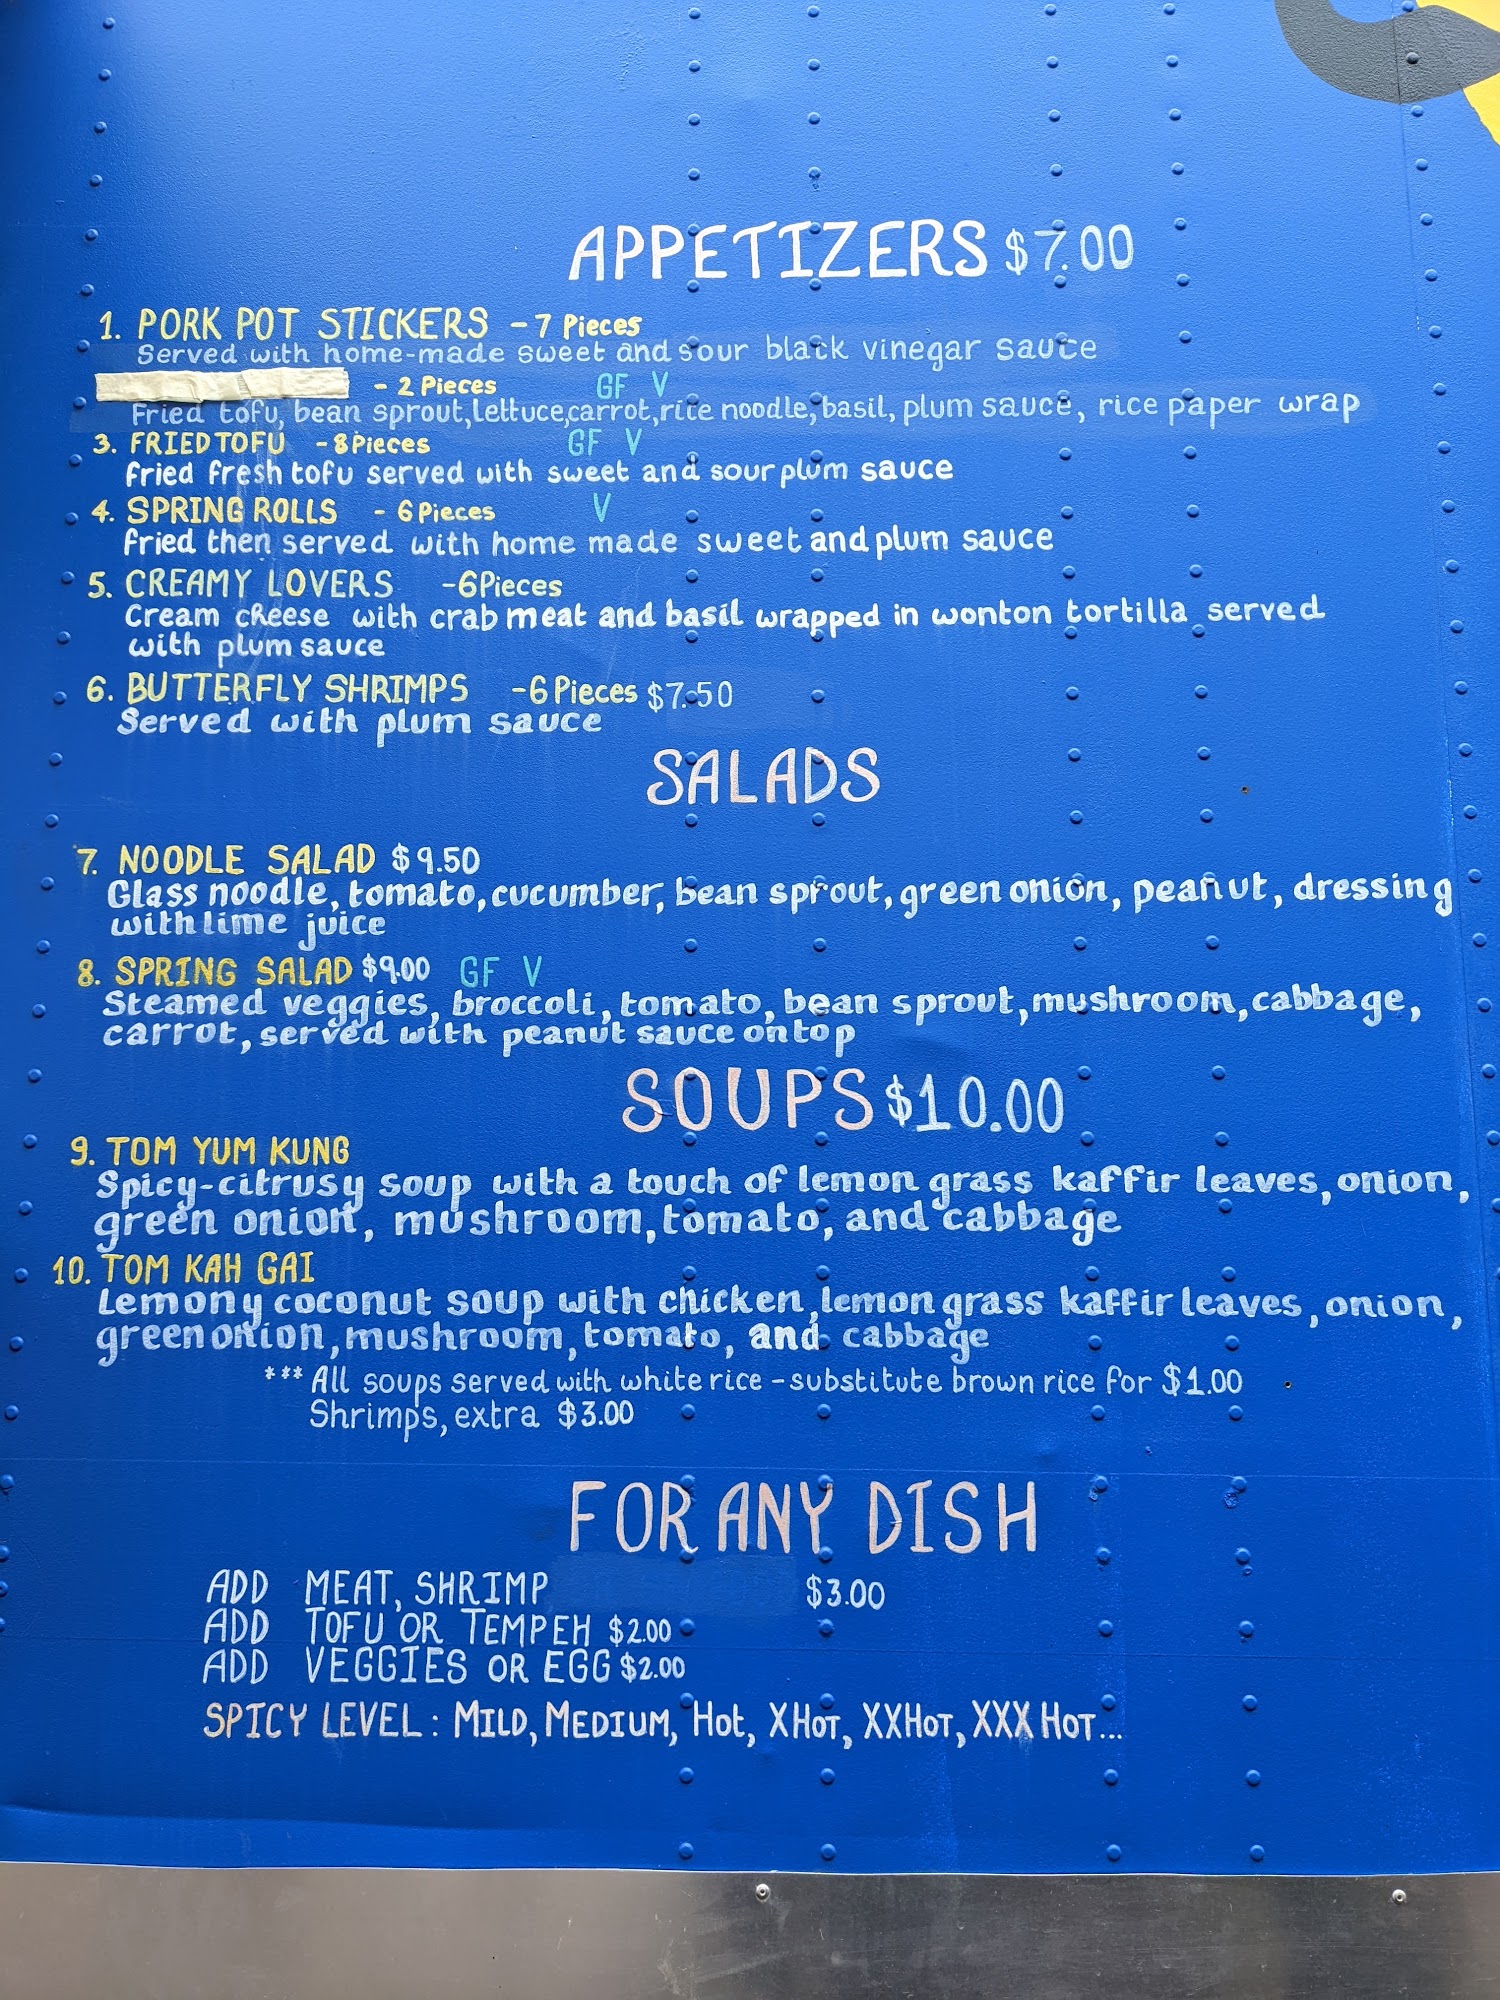 APPETIZERS $7.00
1. PORK POT STICKERS - 7 Pieces
Served with home-made sweet and sour black vinegar sauce
- 2 Pieces GF V
Fried tofu, bean sprout, lettuce, carrot, rice noodle, basil, plum sauce, rice paper wrap
3. FRIED TOFU - 8 Pieces GF V
Fried fresh tofu served with sweet and sour plum sauce
4. SPRING ROLLS - 6 Pieces V
Fried then served with home made sweet and plum sauce
5. CREAMY LOVERS - 6 Pieces
Cream cheese with crab meat and basil wrapped in wonton tortilla served
with plum sauce
6. BUTTERFLY SHRIMPS - 6 Pieces $7.50
Served with plum sauce
SALADS
7. NOODLE SALAD $9.50
Glass noodle, tomato, cucumber, bean sprout, green onion, peanut, dressing
with lime juice
8. SPRING SALAD $9.00 GF V
Steamed veggies, broccoli, tomato, bean sprout, mushroom, cabbage,
carrot, served with peanut sauce on top
SOUPS $10.00
9. TOM YUM KUNG
Spicy-citrusy soup with a touch of lemon grass kaffir leaves, onion,
green onion, mushroom, tomato, and cabbage
10. TOM KAH GAI
Lemony coconut soup with chicken, lemon grass kaffir leaves, onion,
green onion, mushroom, tomato, and cabbage
*** All soups served with white rice - substitute brown rice for $1.00
Shrimps, extra $3.00
FOR ANY DISH
ADD MEAT, SHRIMP $3.00
ADD TOFU OR TEMPEH $2.00
ADD VEGGIES OR EGG $2.00
SPICY LEVEL: MILD, MEDIUM, Hot, XHOT, XXHOT, XXX HOT...